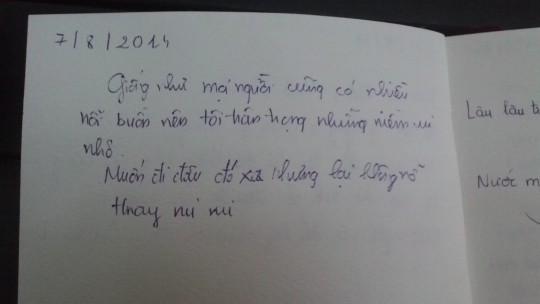 7/8/2014
Giống như mọi người cũng có nhiều
nỗi buồn nên tôi trân trọng những niềm vui
nhỏ.
Muốn đi đâu đó xa nhưng lại không rõ
Hnay
Lâu lâu
Nước m